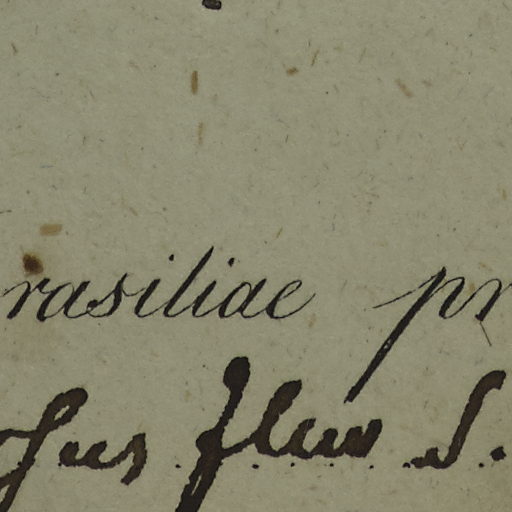 rasiliae pr
fluv S.